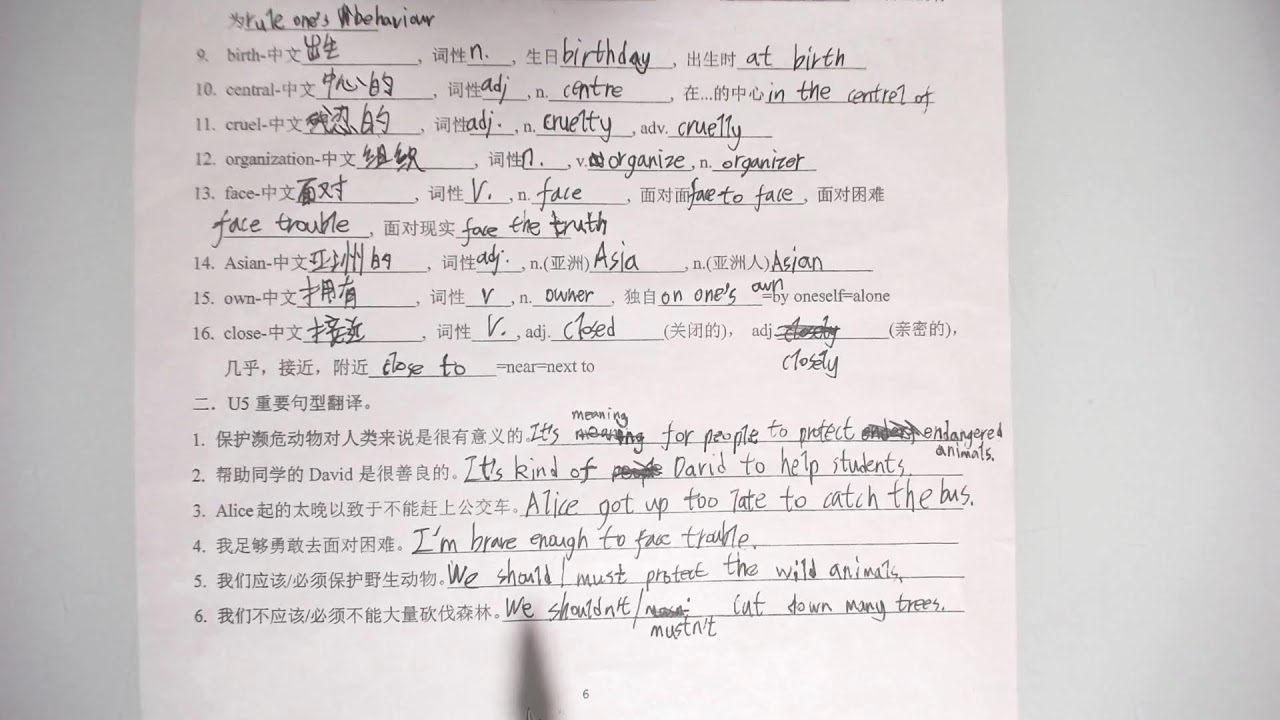 为rule one's behaviour
9. birth-中文出生, 词性n., 生日birthday, 出生时at birth
10. central-中文中心的, 词性adj, n. centre, 在...的中心in the centrel of
11. cruel-中文残忍的, 词性adj., n. cruelty, adv. cruelly
12. organization-中文组织, 词性n., v. organize, n. organizer
13. face-中文面对, 词性V., n. face, 面对面face to face, 面对困难
face trouble, 面对现实face the truth
14. Asian-中文亚洲的, 词性adj., n.(亚洲)Asia, n.(亚洲人)Asian
15. own-中文拥有, 词性v, n. owner, 独自on one's own=by oneself=alone
16. close-中文接近, 词性V., adj. closed(关闭的), adj.closely(亲密的),
closely
几乎，接近，附近close to=near=next to
二．U5 重要句型翻译。
1. 保护濒危动物对人类来说是很有意义的。It's meaning for people to protect endangered animals.
2. 帮助同学的 David 是很善良的。It's kind of David to help students.
3. Alice 起的太晚以致于不能赶上公交车。Alice got up too late to catch the bus.
4. 我足够勇敢去面对困难。I'm brave enough to face trouble.
5. 我们应该/必须保护野生动物。We should/must protect the wild animals.
6. 我们不应该/必须不能大量砍伐森林。We shouldn't/mustn't cut down many trees.
6